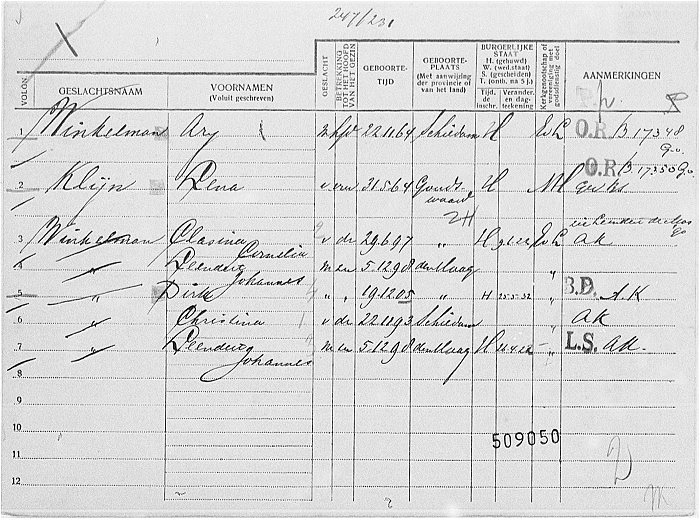 247/231
VOLGN.
GESLACHTSNAAM
VOORNAMEN
(Voluit geschreven)
GESLACHT
BETREKKING TOT HET HOOFD VAN HET GEZIN
GEBOORTE-TIJD
GEBOORTE-PLAATS
(Met aanwijzing der provincie of van het land)
BURGERLIJKE STAAT
H. (gehuwd)
W. (wed.staat)
S. (gescheiden)
T. (onth. na 5 j.)
Tijd. de inschr.
Verander. en dag-teekening
Kerkgenootschap of vereeniging met godsdienstig doel
AANMERKINGEN
1 Winkelman Ary m hfd 22.11.64 Schiedam H O.R. B. 17348 Go.
2 Klijn Lena v vrw 31.5.64 H NH O.R. B. 17350 Go.
ZH
3 Winkelman Clasina Cornelia v dr 29.6.97 " H AK
4 " Leendert Johannes m zn 5.12.98 den Haag "
5 " Dirk " " 19.12.05 " H 25.5.32 " B.D. A.K
6 " Christina v dr 22.11.93 Schiedam " AK
7 " Leendert Johannes m zn 5.12.98 den Haag H " L.S. AK.
8
9
10
509050
11
12